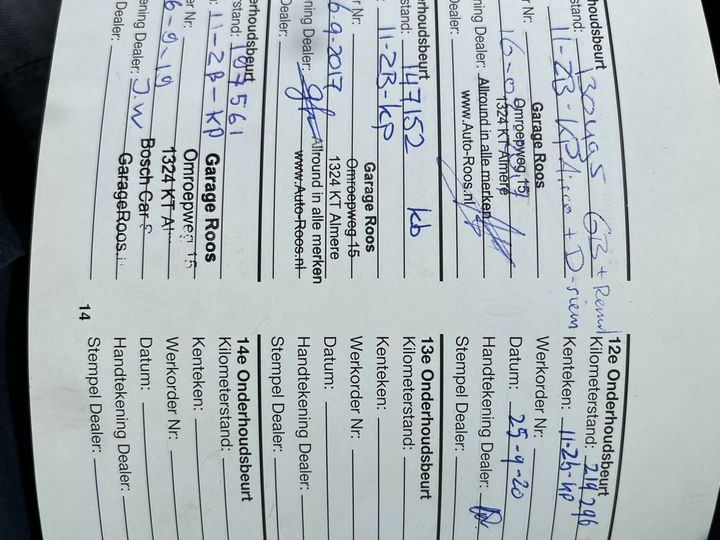 houdsbeurt
stand: 130495 GB + Remvl
11-2B-KP Airco + D-riem
r Nr:
Garage Roos
Omroepweg 15
1324 KT Almere
ening Dealer: Allround in alle merken
www.Auto-Roos.nl
Dealer:
nderhoudsbeurt
stand: 147152 kb
11-2B-KP
r Nr:
Garage Roos
Omroepweg 15
6-9-2017 1324 KT Almere
ning Dealer: Allround in alle merken
www.Auto-Roos.nl
Dealer:
erhoudsbeurt
rstand: 187561
11-2B-KP
er Nr:
Garage Roos
Omroepweg 15
6-9-19 1324 KT Al
ening Dealer: J.W Bosch Car S
GarageRoos.
l Dealer:
12e Onderhoudsbeurt
Kilometerstand: 214296
Kenteken: 11-2b-kp
Werkorder Nr:
Datum: 25-9-20
Handtekening Dealer:
Stempel Dealer:
13e Onderhoudsbeurt
Kilometerstand:
Kenteken:
Werkorder Nr:
Datum:
Handtekening Dealer:
Stempel Dealer:
14e Onderhoudsbeurt
Kilometerstand:
Kenteken:
Werkorder Nr:
Datum:
Handtekening Dealer:
Stempel Dealer:
14